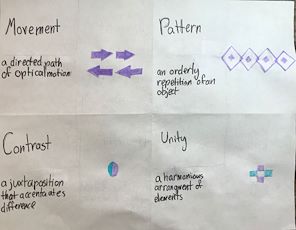 Movement
a directed path
of optical motion
Pattern
an orderly
repetition of an
object
Contrast
a juxtaposition
that accentuates
difference
Unity
a harmonious
arrangment of
elements